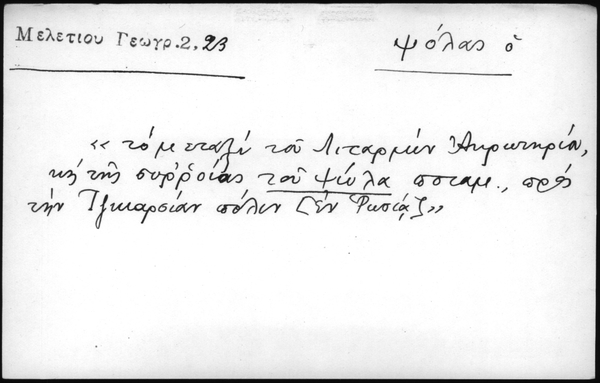 Μελετίου Γεωγρ. 2, 23
ψόλας ὁ
« τὸ μεταξὺ τοῦ Λιταρμὴν Ἀκρωτηρία,
κὴ τῆς συῤῥοίας τοῦ ψόλα ποταμ., πρὸς
τὴν πόλιν [ἐν Ῥωσίᾳ] »